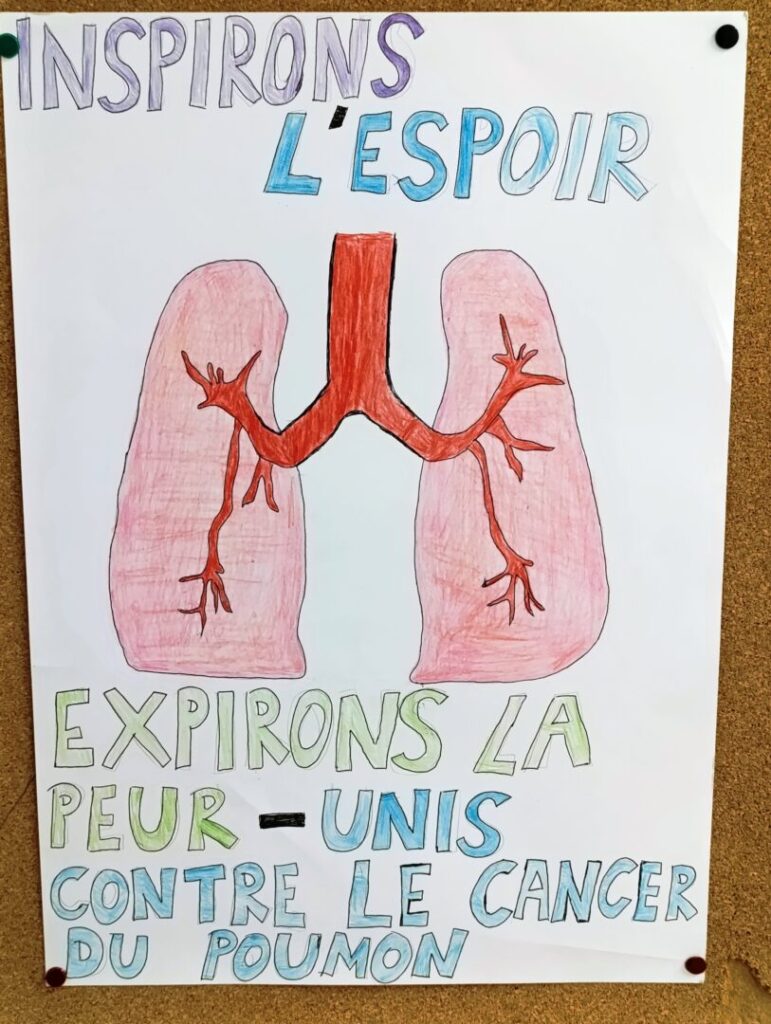 INSPIRONS
L'ESPOIR
EXPIRONS LA
PEUR - UNIS
CONTRE LE CANCER
DU POUMON